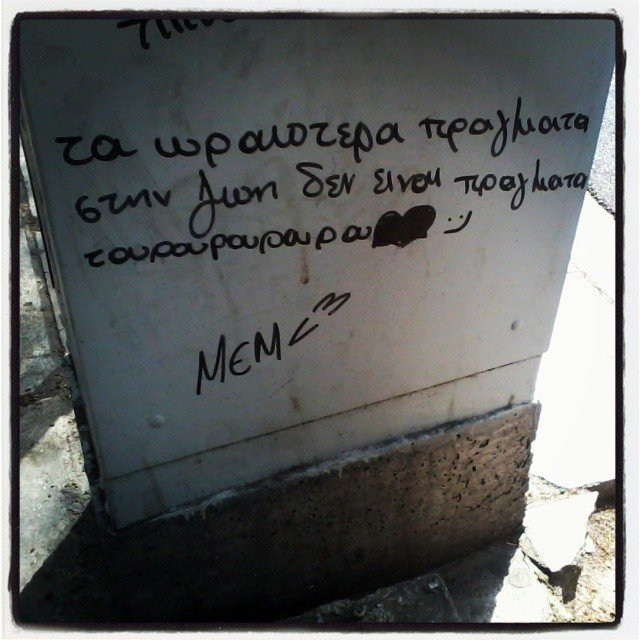 τα ωραιοτερα πραγματα
στην ζωη δεν ειναι πραγματα
ταυραυραυραυραυ
ΜΕΜ<3